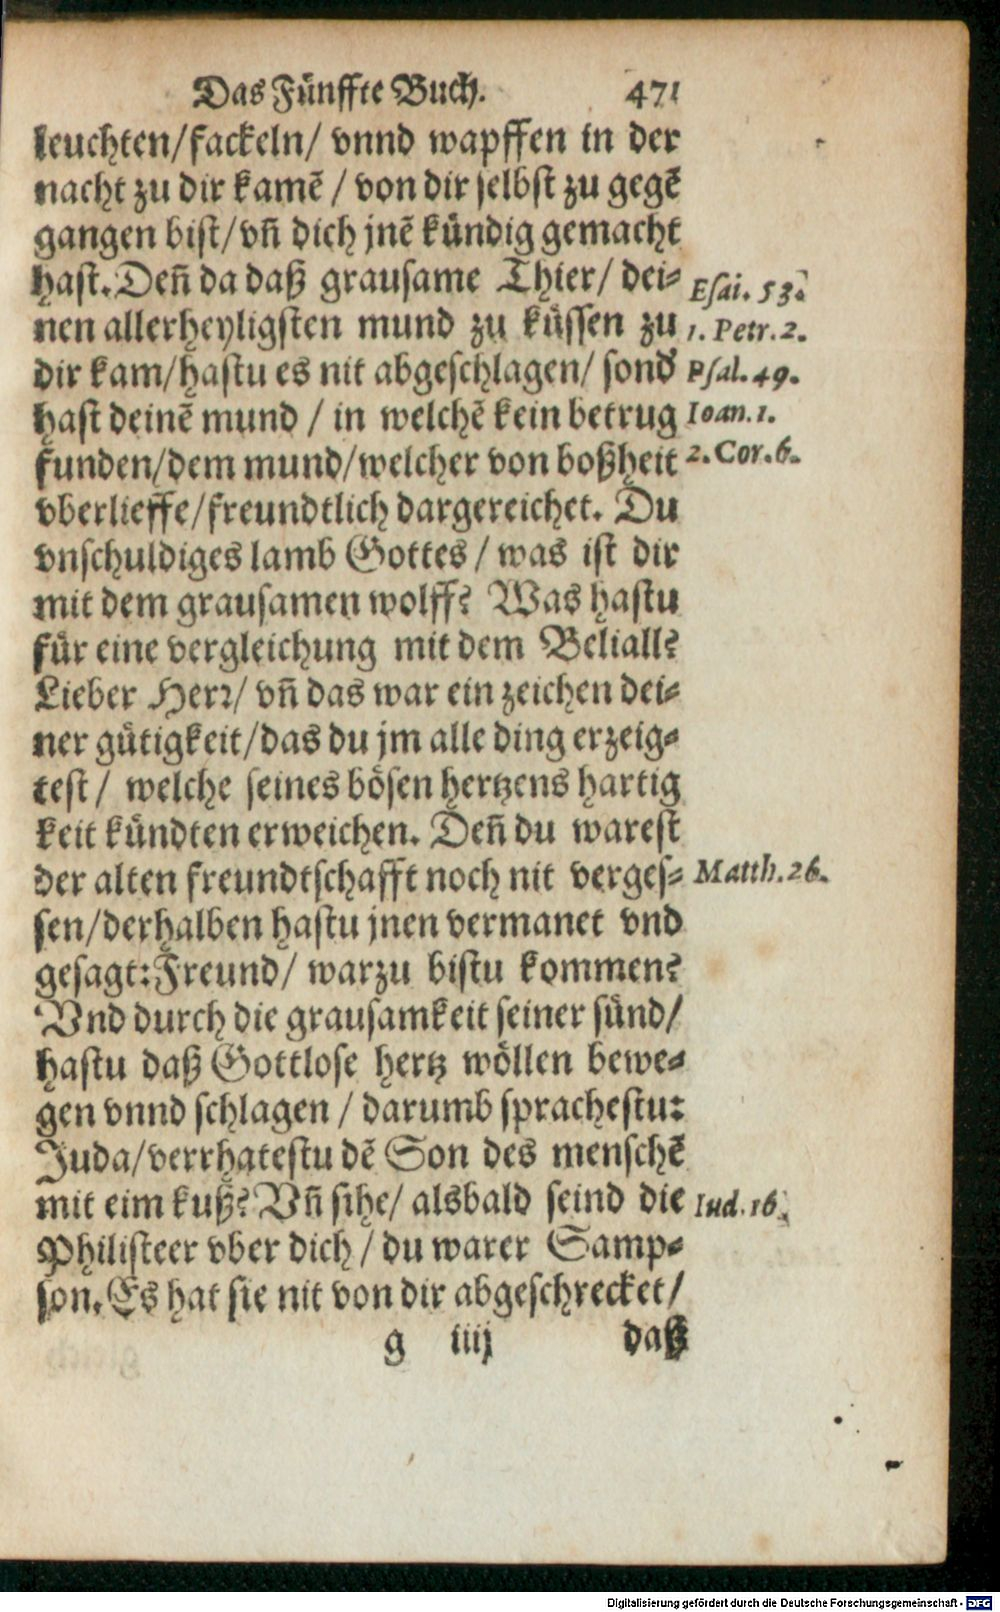 Das Fünffte Buch. 471
leuchten/fackeln/ vnnd wapffen in der
nacht zu dir kamē / von dir selbst zu gegē
gangen bist/vñ dich jnē kündig gemacht
hast. Deñ da daß grausame Thier/ dei-
nen allerheyligsten mund zu küssen zu
dir kam/hastu es nit abgeschlagen/ sond'
hast deinē mund / in welchē kein betrug
funden/dem mund/welcher von boßheit
vberlieffe/freundtlich dargereichet. Du
vnschuldiges lamb Gottes / was ist dir
mit dem grausamen wolff? Was hastu
für eine vergleichung mit dem Beliall?
Lieber Herr/ vñ das war ein zeichen dei-
ner gütigkeit/das du jm alle ding erzeig-
test / welche seines bösen hertzens hartig
keit kündten erweichen. Deñ du warest
der alten freundtschafft noch nit verges-
sen/derhalben hastu jnen vermanet vnd
gesagt: Freund/ warzu bistu kommen?
Vnd durch die grausamkeit seiner sünd/
hastu daß Gottlose hertz wöllen bewe-
gen vnnd schlagen / darumb sprachestu:
Juda/verrhatestu dē Son des menschē
mit eim kuß? Vñ sihe/ alsbald seind die
Philisteer vber dich / du warer Samp-
son. Es hat sie nit von dir abgeschrecket/
g iiij daß
Esai. 53.
1. Petr. 2.
Psal. 49.
Ioan. 1.
2. Cor. 6.
Matth. 26.
Iud. 16.
Digitalisierung gefördert durch die Deutsche Forschungsgemeinschaft - DFG